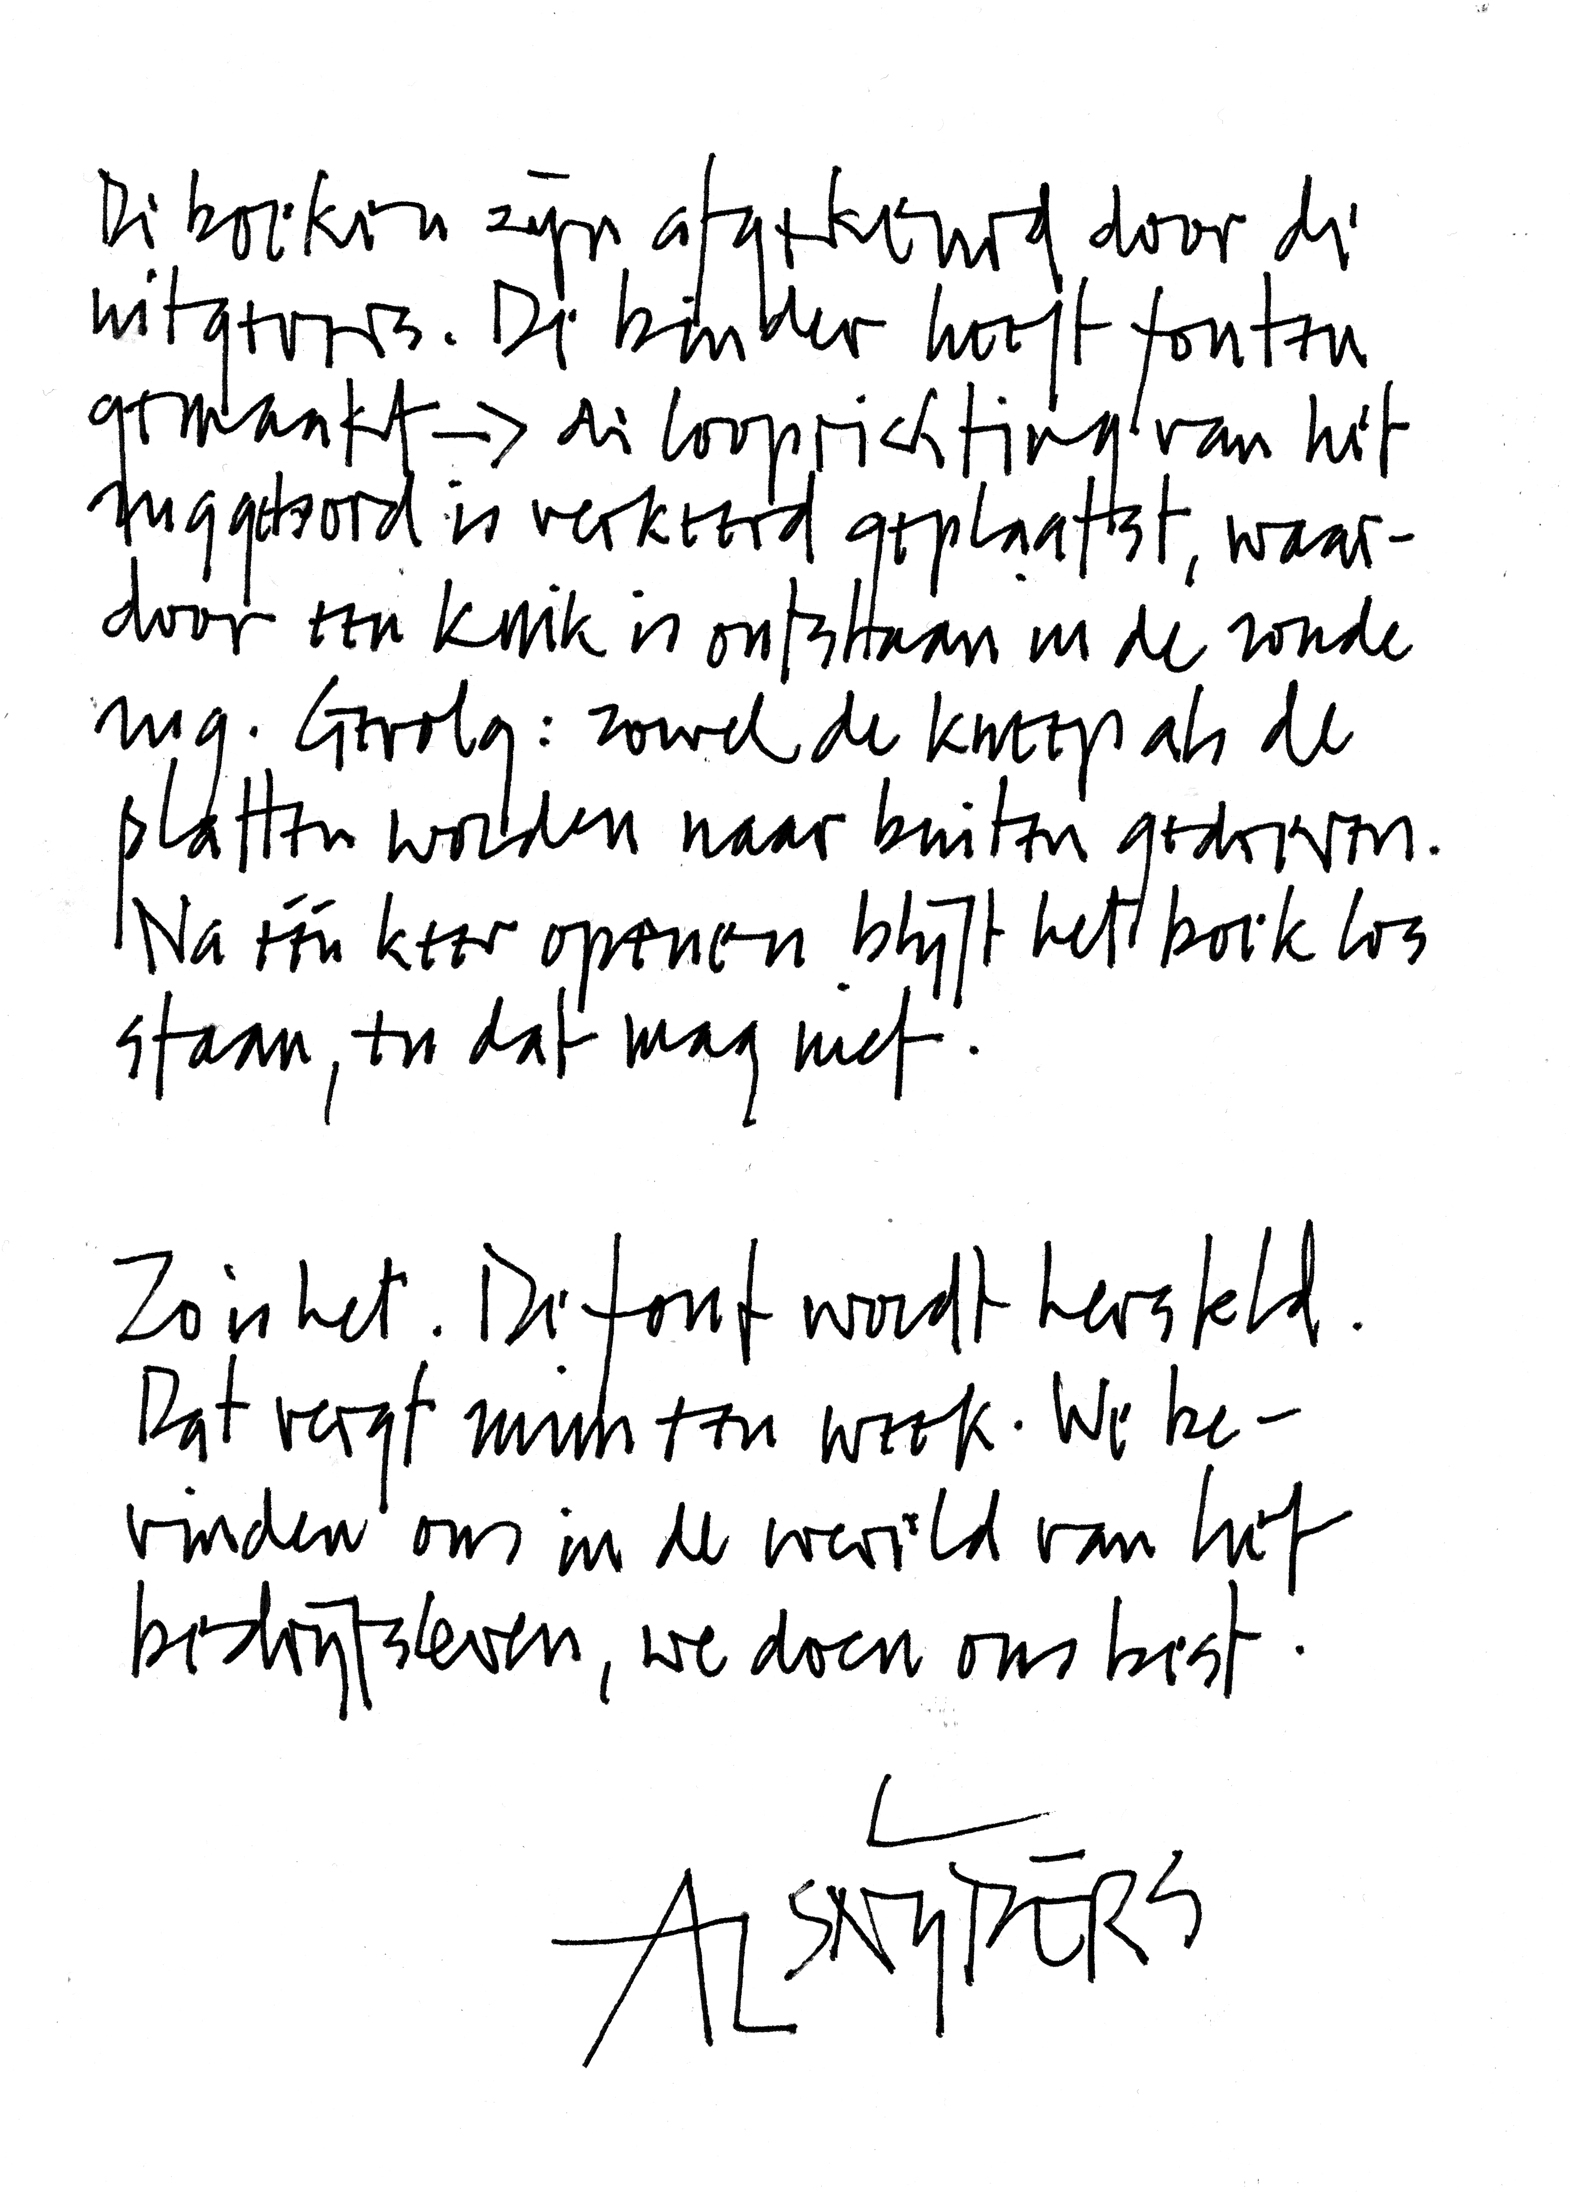 De boeken zijn afgekeurd door de
uitgevers. De binder heeft fouten
gemaakt → de looprichting van het
ruggetbord is verkeerd geplaatst, waar-
door een knik is ontstaan in de ronde
rug. Gevolg: zowel de kneep als de
platten worden naar buiten gedreven.
Na één keer openen blijft het boek los
staan, en dat mag niet.
Zo is het. De fout wordt hersteld.
Dat vergt ruim een week. We be-
vinden ons in de wereld van het
bedrijfsleven, we doen ons best.
AL SNIJDERS